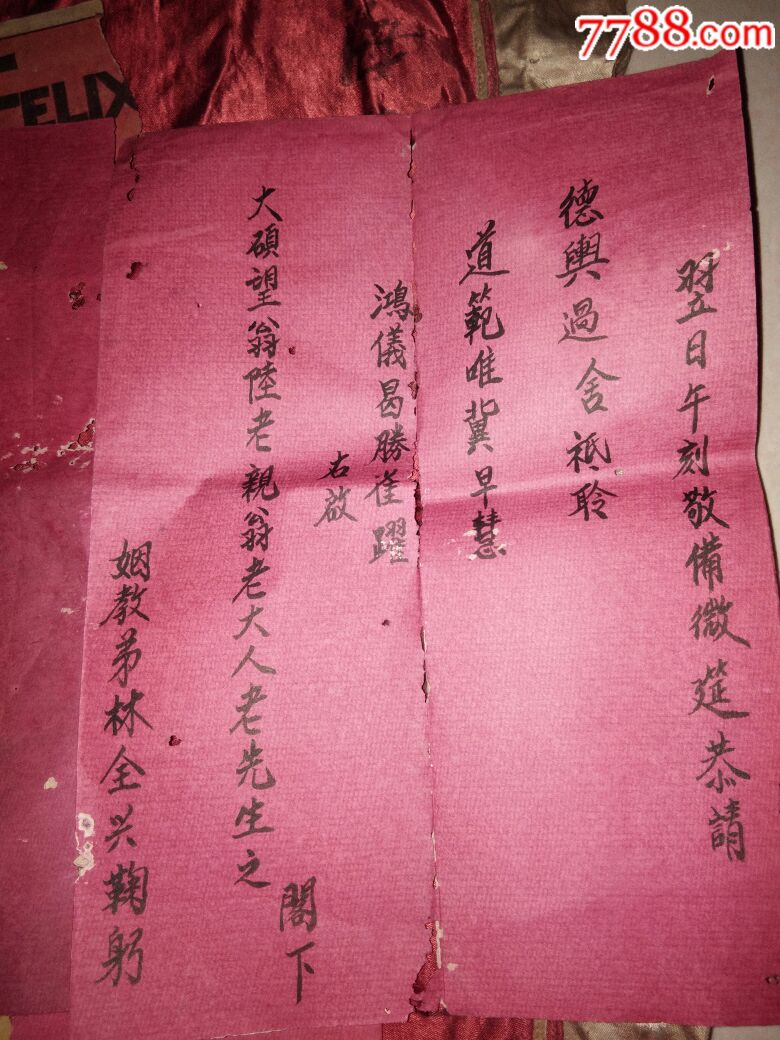 翌日午刻敬備微筵恭請
德輿過舍祗聆
道範唯冀早慧
鴻儀曷勝雀躍
右啟
大碩望翁陸老親翁老大人老先生之
閣下
姻教弟林全兴鞠躬
FELIX
7788.com